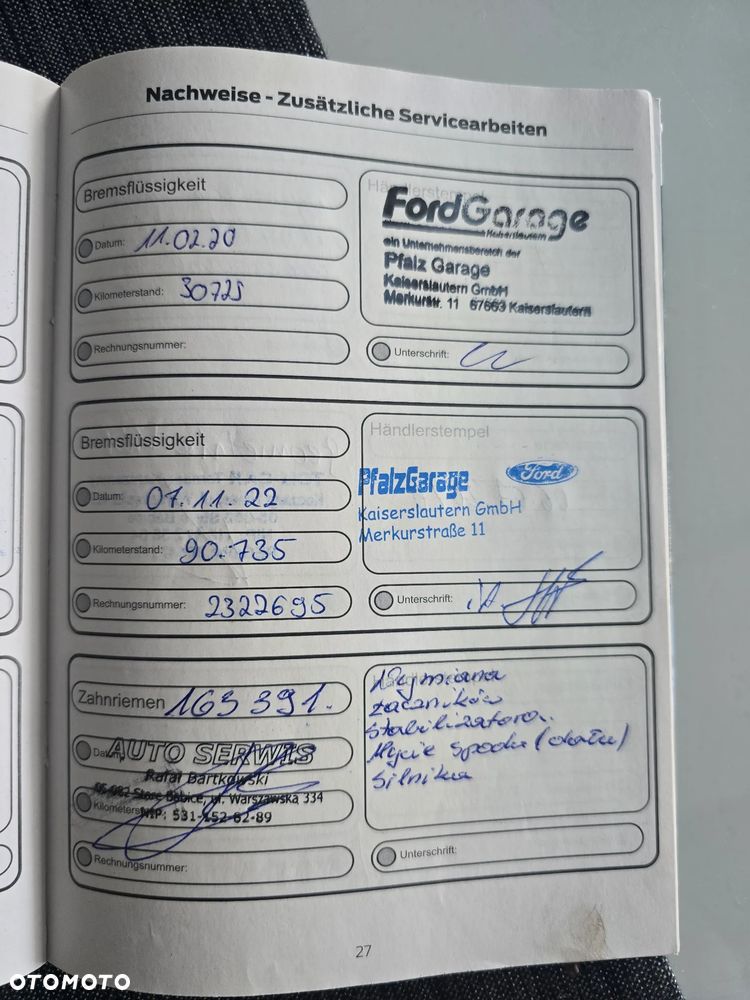 Nachweise - Zusätzliche Servicearbeiten
Bremsflüssigkeit
Händlerstempel
FordGarage
Kaiserslautern
ein Unternehmensbereich der
Pfalz Garage
Kaiserslautern GmbH
Merkurstr. 11 67663 Kaiserslautern
Datum: 11.02.20
Kilometerstand: 30725
Rechnungsnummer:
Unterschrift:
Bremsflüssigkeit
Händlerstempel
PfalzGarage Ford
Kaiserslautern GmbH
Merkurstraße 11
Datum: 07.11.22
Kilometerstand: 90.735
Rechnungsnummer: 2322695
Unterschrift: i.A.
Zahnriemen 163 391.
Wymiana
łączników
Stabilizatora.
Mycie spodu (dołu)
Silnika
AUTO SERWIS
Rafał Bartkowski
Stare Babice, ul. Warszawska 334
NIP: 531-152-62-89
Rechnungsnummer:
Unterschrift:
27
OTOMOTO